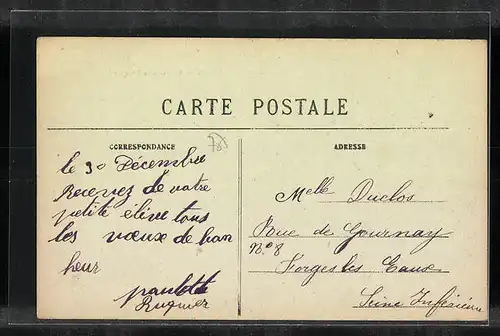 CARTE POSTALE
CORRESPONDANCE
ADRESSE
le 30 Décembre
Recevez de votre
petite élève tous
les vœux de bon
heur
paulette
Ruquier
78
Melle Duclos
Rue de Gournay
No 8
Forges les Eaux
Seine Inférieure